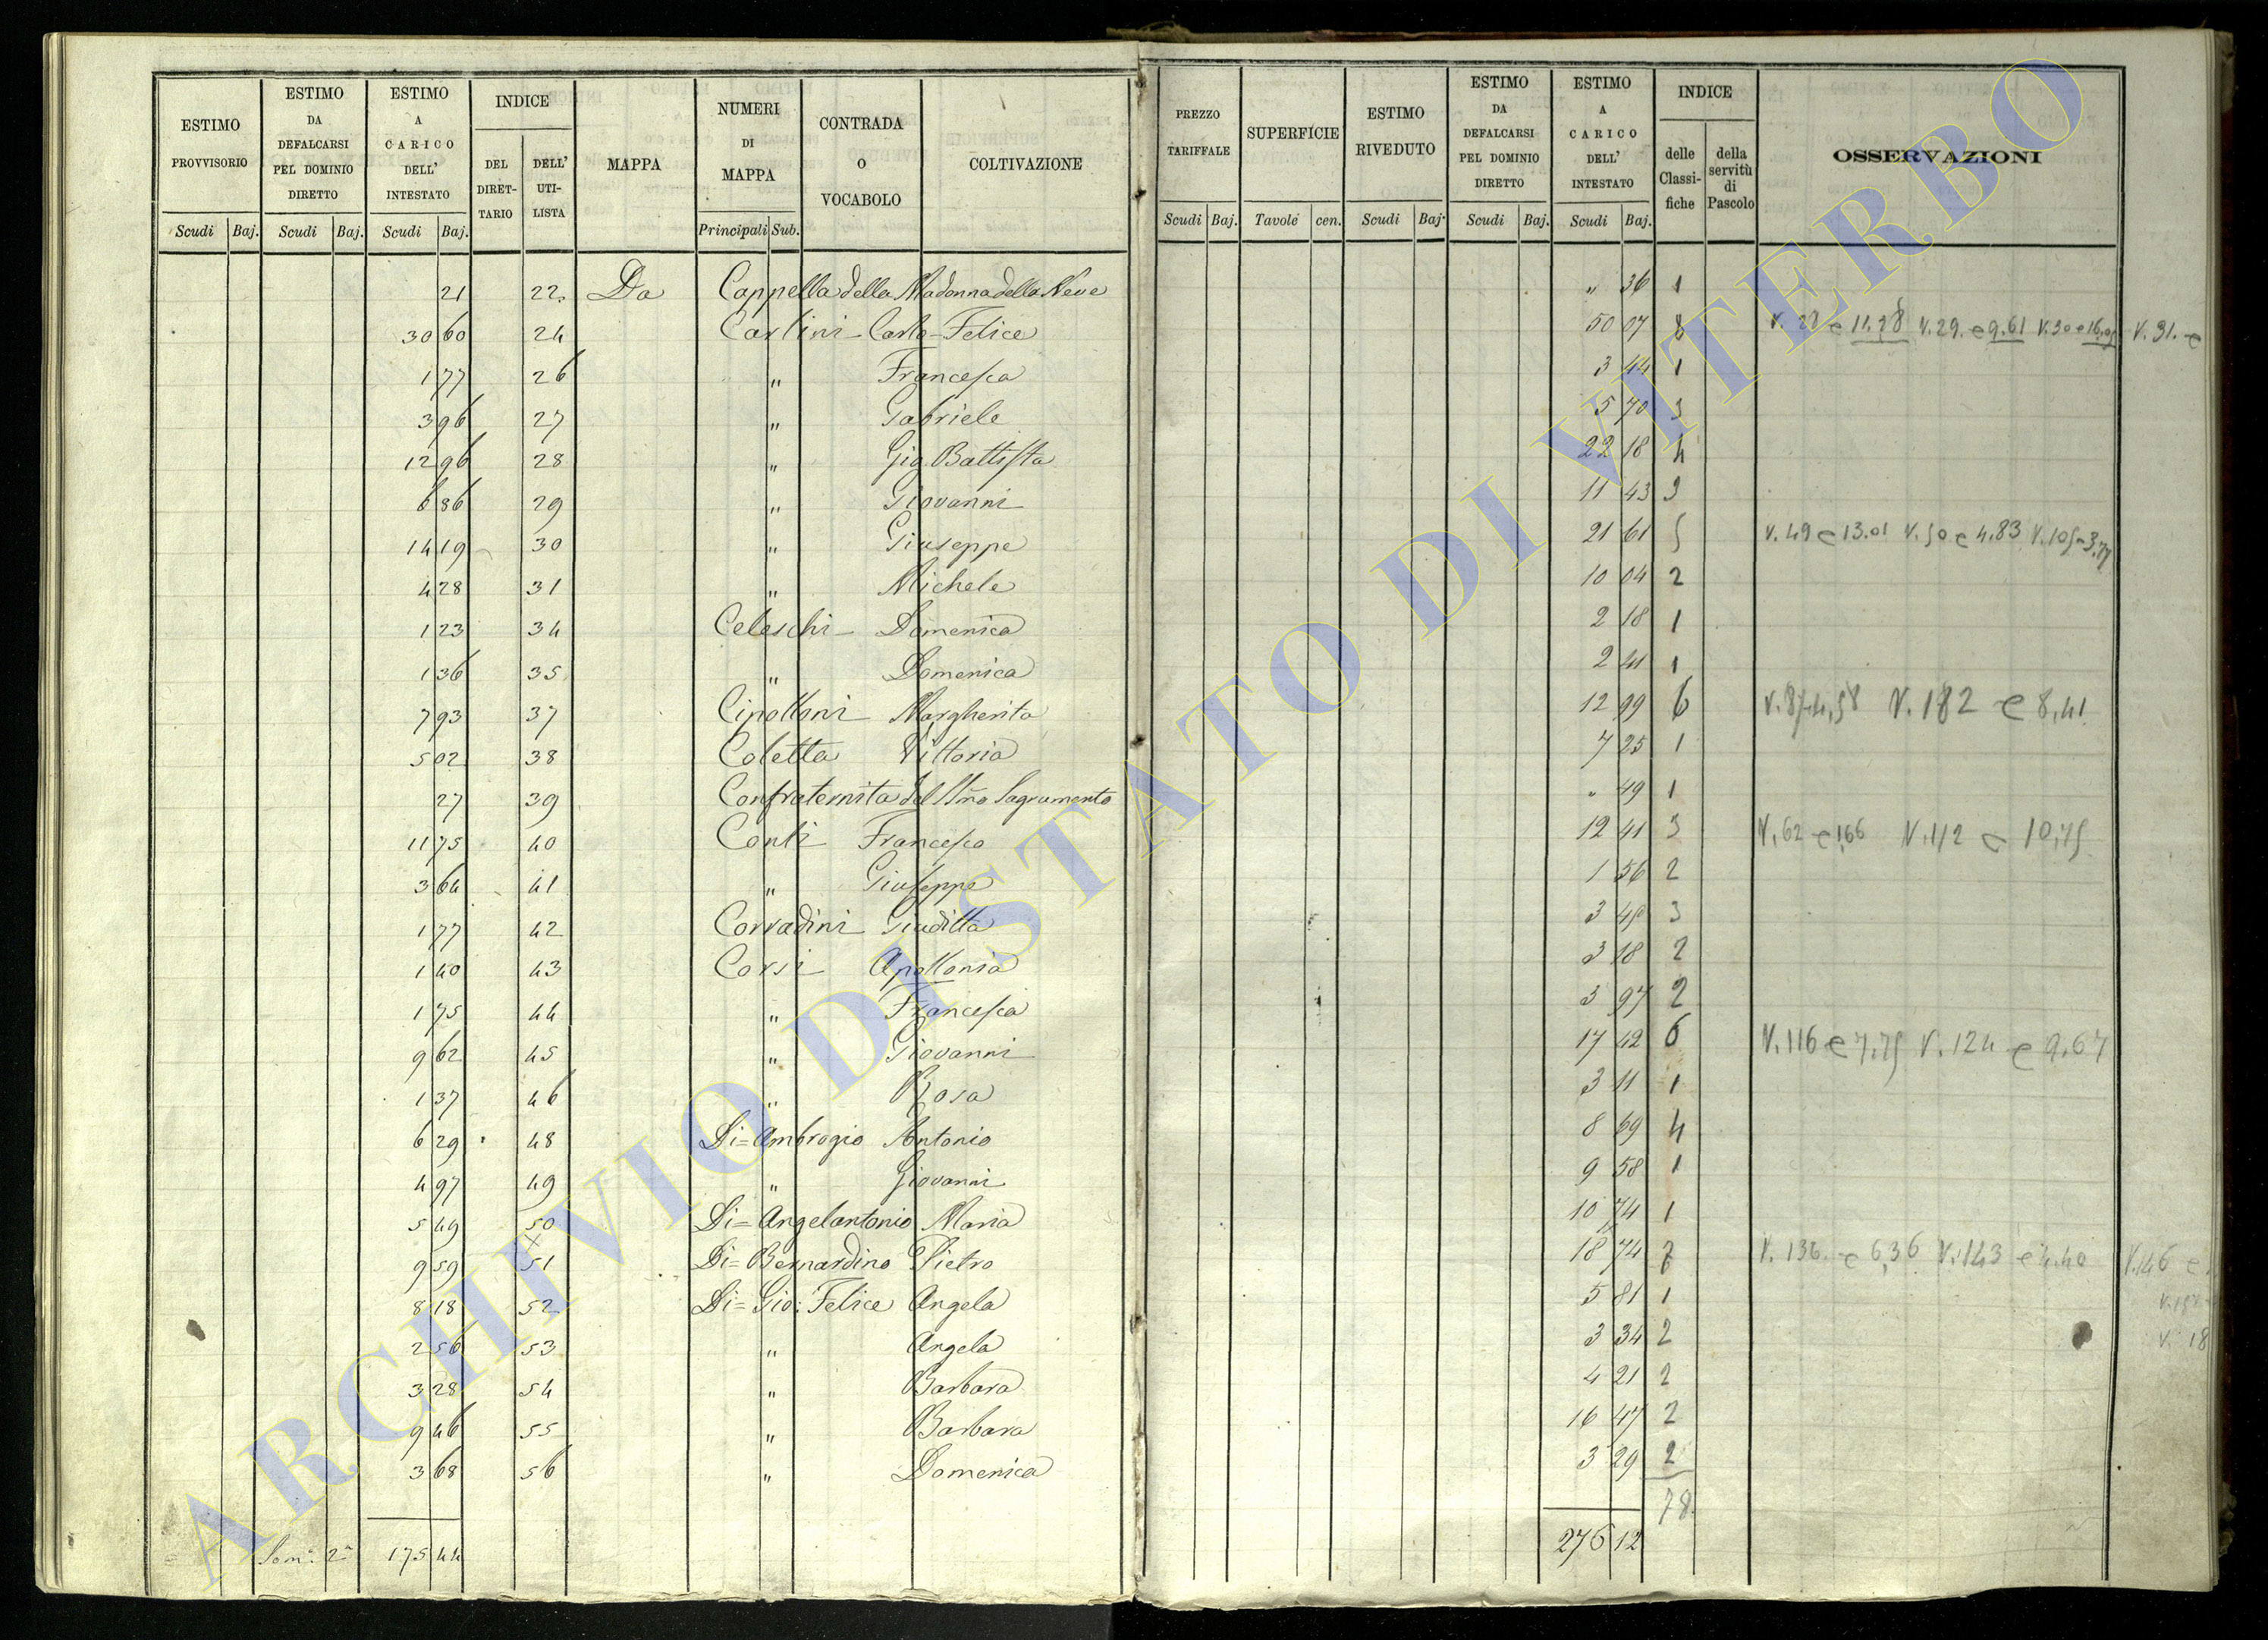 ESTIMO PROVVISORIO | ESTIMO DA DEFALCARSI PEL DOMINIO DIRETTO | ESTIMO A CARICO DELL' INTESTATO | INDICE DEL DIRETTARIO | DELL' UTILISTA | MAPPA | NUMERI DI MAPPA | CONTRADA O VOCABOLO | COLTIVAZIONE | PREZZO TARIFFALE | SUPERFICIE | ESTIMO RIVEDUTO | ESTIMO DA DEFALCARSI PEL DOMINIO DIRETTO | ESTIMO A CARICO DELL' INTESTATO | INDICE delle Classifiche | della servitù di Pascolo | OSSERVAZIONI
Scudi Baj. Scudi Baj. Scudi Baj. Principali Sub. Scudi Baj. Tavole cen. Scudi Baj. Scudi Baj. Scudi Baj.
21 22 Da Cappella della Madonna della Neve " 36 1
30 60 24 Carlini Carlo Felice 50 07 8 V. 29. e 9.61
1 77 26 " Francesca 3 1
3 96 27 " Gabriele 5 70 3
12 96 28 " Gio Battista 22 18 4
6 86 29 " Giovanni 11 43 3
14 19 30 " Giuseppe 21 61 5 V. 49 e 13.01 V. 50 e 4.83
4 28 31 " Michele 10 04 2
1 23 34 Celeschi Domenica 2 18 1
1 36 35 " Domenica 2 41 1
7 93 37 Cipolloni Margherita 12 99 6 V. 182 e 8,41
5 02 38 Coletta Vittoria 7 25 1
27 39 Confraternita del SSmo Sagramento " 49 1
11 75 40 Conti Francesco 12 41 3 V. 62 e 1,66 V. 112 e 10,75
3 64 41 " Giuseppe 1 56 2
1 77 42 Corradini Giuditta 3 3
1 40 43 Corsi Apollonia 3 18 2
1 75 44 " Francesca 3 97 2
9 62 45 " Giovanni 17 42 6 V. 116 e 7.75 V. 124 e 9.67
1 37 46 " Rosa 3 11 1
6 29 48 Di= Ambrogio Antonio 8 69 4
4 97 49 " Giovanni 9 58 1
5 49 50 Di= Angelantonio Maria 10 74 1
9 59 51 Di= Bernardino Pietro 18 74 7 V. 136. e 6,36 V. 143 e 4.40 V. 146 e
8 18 52 Di= Gio: Felice Angela 5 81 1
2 56 53 " Angela 3 34 2 V. 18
3 28 54 " Barbara 4 21 2
9 46 55 " Barbara 16 47 2
3 68 56 " Domenica 3 29 2
78
Som.a 2a 175 44 276 12
ARCHIVIO DI STATO DI VITERBO